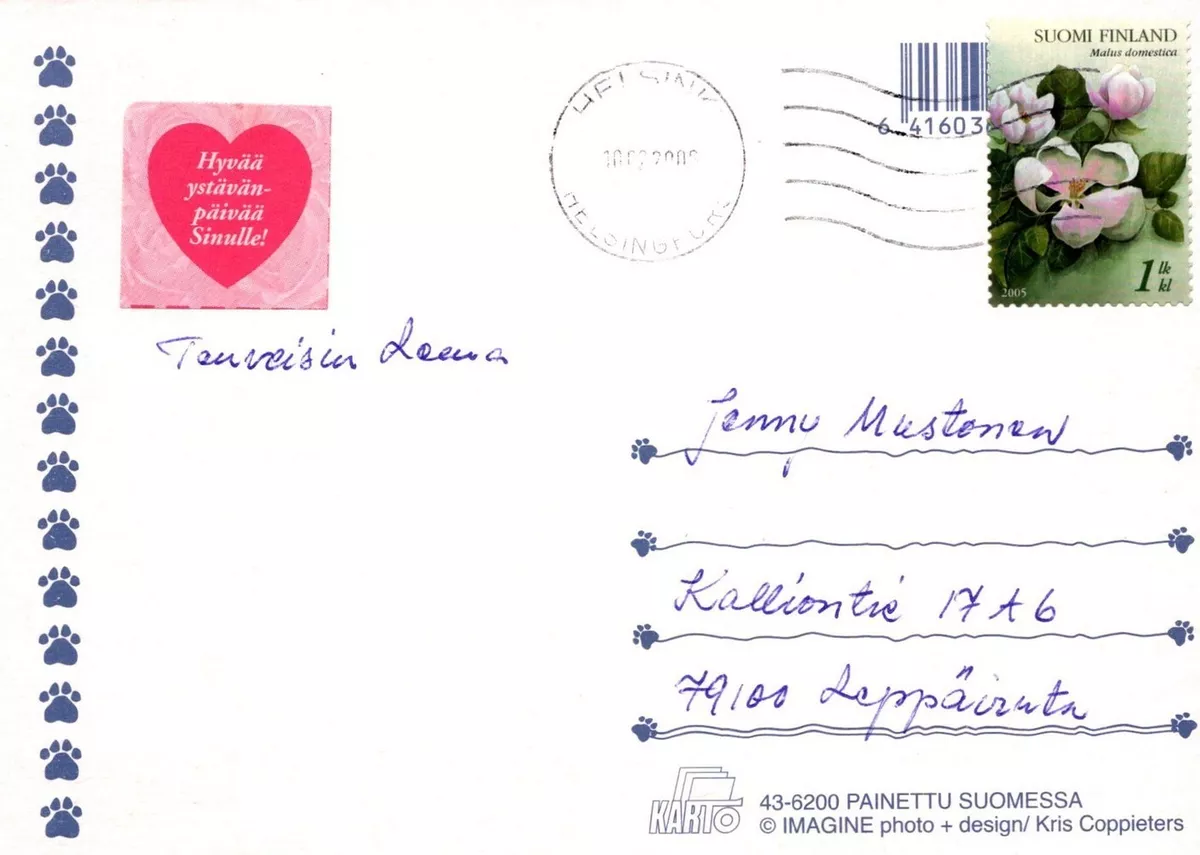 SUOMI FINLAND
Malus domestica
HELSINKI
6 41603
10.02.2009
Hyvää
ystävän-
päivää
Sinulle!
HELSINGFORS
1 lk
kl
2005
Terveisin Leena
Jenny Mustonen
Kalliontie 17 A 6
79100 Leppävirta
KARTO
43-6200 PAINETTU SUOMESSA
© IMAGINE photo + design/ Kris Coppieters